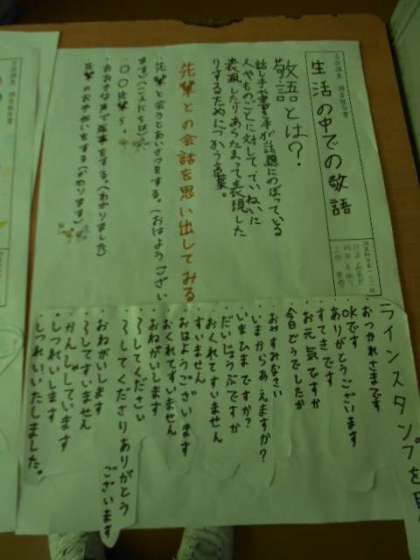 生活の中での敬語
敬語とは?
話し手や書き手が話題にのぼっている
人やものごとに対して、ていねいに
表現したりあらたまって表現した
りするためにつかう言葉。
先輩との会話を思い出してみる
先輩と会うとあいさつをする。(おはようござい
ます)(こんにちは)
〇〇先輩〜。
おおきな声で返事をする。(わかりました)
ラインスタンプを
・おつかれさまです
・OKです
・ありがとうございます
・すてきです
・お元気ですか
・今日どうでしたか
・おやすみなさい
・いまからあえますか?
・いまひまですか?
・だいじょうぶですか
・おくれてすいません
・すいません
・おはようございます
・おくれてすいません
・おねがいします
・〜してください
・〜してくださりありがとう
ございます
・おねがいします
・〜してすいません
・かんしゃしています
・しつれいします
・しつれいいたしました。